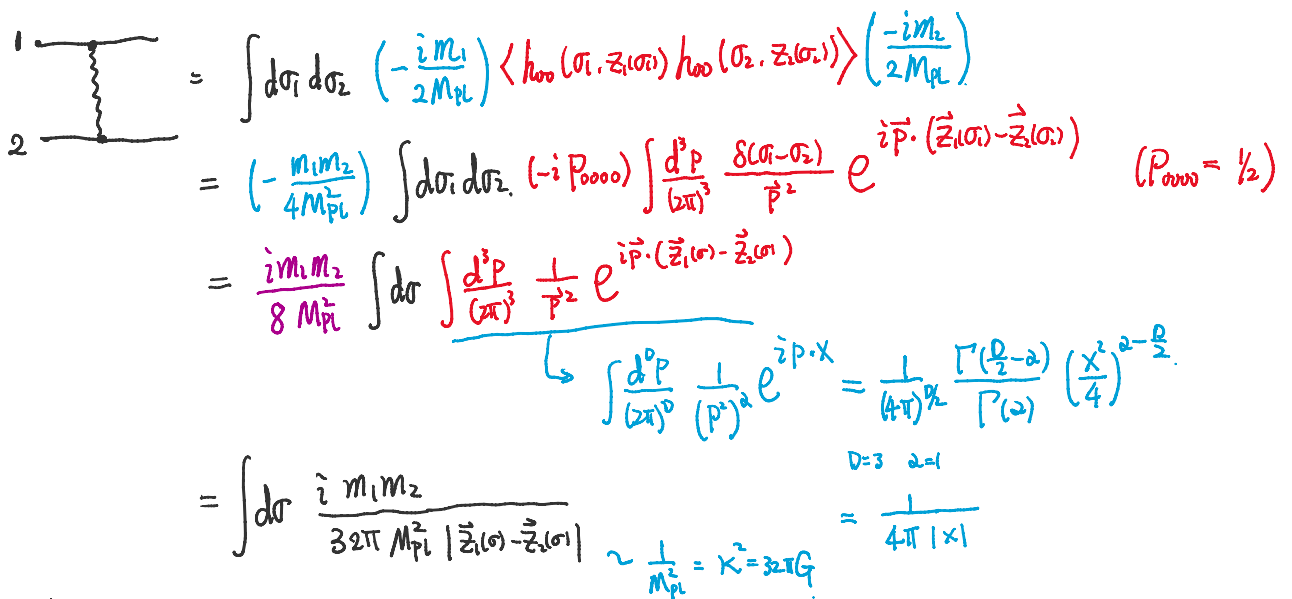 1
2
= ∫dσ₁dσ₂ (-im₁/2M_Pl) ⟨h₀₀(σ₁, z₁(σ₁)) h₀₀(σ₂, z₂(σ₂))⟩ (-im₂/2M_Pl)
= (-m₁m₂/4M²_Pl) ∫dσ₁dσ₂. (-iP₀₀₀₀) ∫ d³p/(2π)³ δ(σ₁-σ₂)/p⃗² e^{ip⃗·(z⃗₁(σ₁)-z⃗₂(σ₂))} (P₀₀₀₀ = 1/2)
= im₁m₂/8M²_Pl ∫dσ ∫ d³p/(2π)³ 1/p⃗² e^{ip⃗·(z⃗₁(σ)-z⃗₂(σ))}
↳ ∫ d^Dp/(2π)^D 1/(p²)^α e^{ip·x} = 1/(4π)^{D/2} Γ(D/2-α)/Γ(α) (x²/4)^{α-D/2}.
D=3 α=1
= ∫dσ i m₁m₂/32π M²_Pl |z⃗₁(σ)-z⃗₂(σ)|
= 1/4π|x|
~ 1/M²_Pl = κ² = 32πG